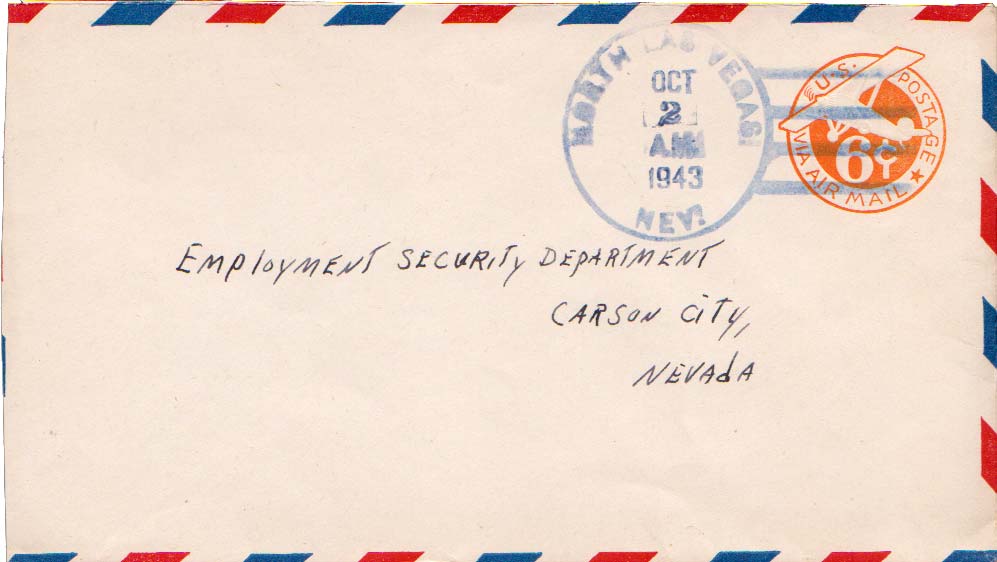 NORTH LAS VEGAS
OCT
2
AM
1943
NEV.
U.S. POSTAGE
6¢
VIA AIR MAIL
EMPloyMENT SECURITy DEPARTMENT
CARSON CiTy,
NEVAdA